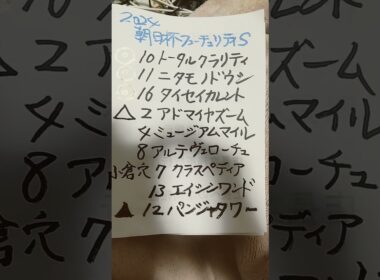 2024
朝日杯フューチュリティS
10 トータルクラリティ
11 ニタモノドウシ
16 タイセイカレント
△ 2 アドマイヤズーム
4 ミュージアムマイル
8 アルテヴェローチェ
小倉穴 7 クラスペディア
13 エイシンワンド
▲ 12 パンジャタワー